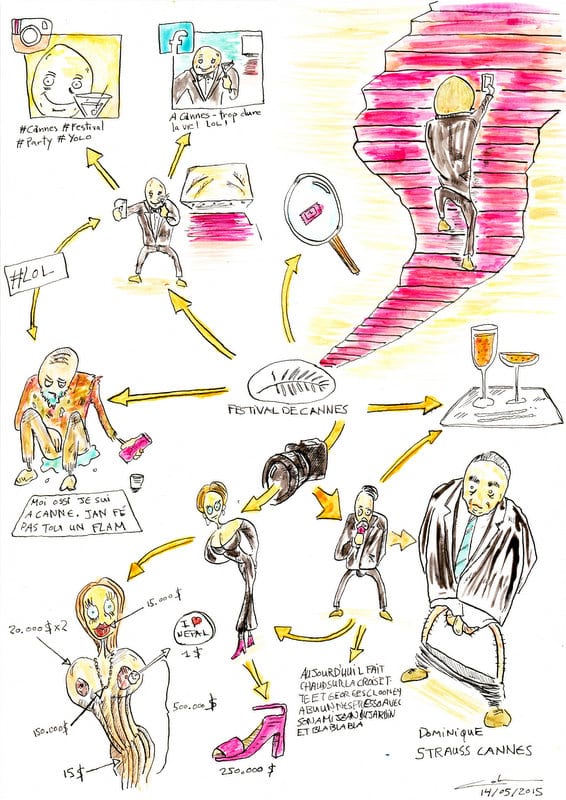 f
#Cannes #Festival
#Party #YOLO
A Cannes - trop dure
la vie! LOL!
#LOL
FESTIVAL DE CANNES
MOI OSSI JE SUI
A CANNE. JAN FÉ
PAS TOUT UN FLAM
15.000$
20.000$ x2
I ❤
NEPAL
1$
150.000$
500.000$
15$
250.000$
AUJOURD'UI IL FAIT
CHAUD SUR LA CROISET-
TE ET GEORGES CLOONEY
A BU UN NESPRESSO AVEC
SON AMI JEAN DUJARDIN
ET BLA BLA BLA
DOMINIQUE
STRAUSS CANNES
14/05/2015